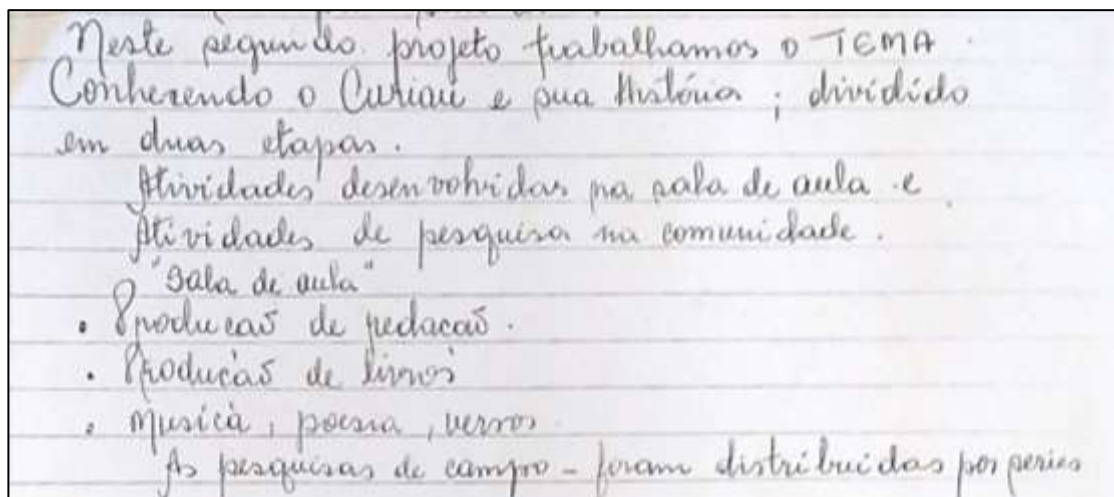 Neste segundo projeto trabalhamos o TEMA
Conhecendo o Curiaú e sua História; dividido
em duas etapas.
Atividades desenvolvidas na sala de aula e
Atividades de pesquisa na comunidade.
"Sala de aula"
• Producaõ de redacaõ.
• Produçaõ de livros
• Musica, poesia, versos
As pesquisas de campo - foram distribuidas por series